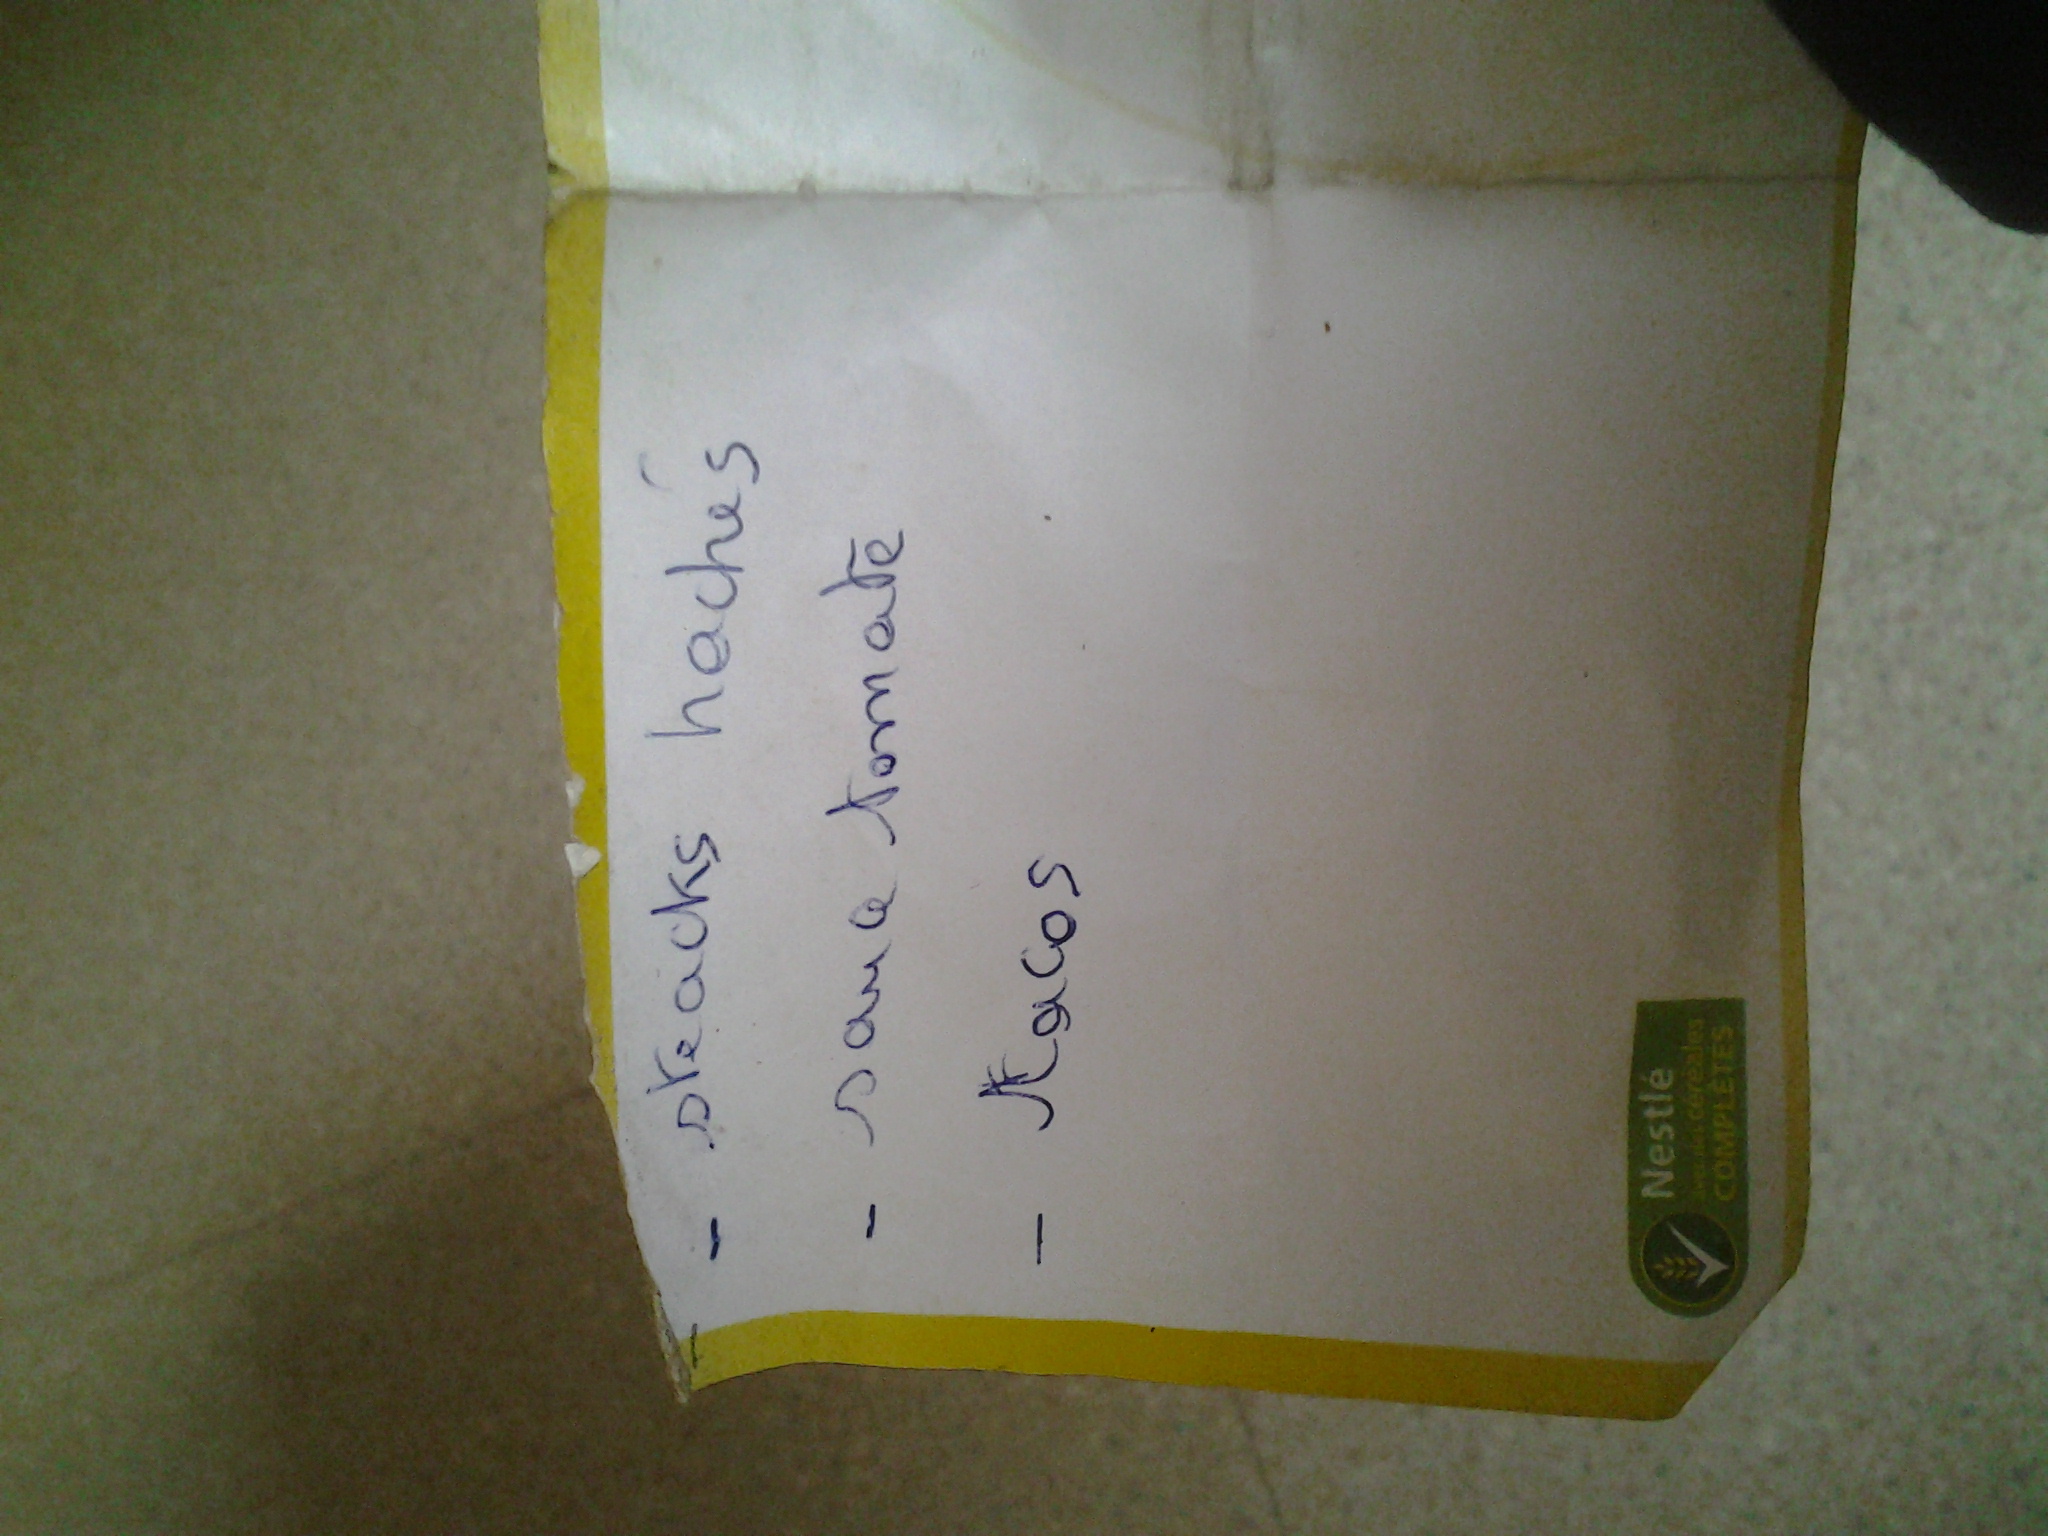 - steacks hachés
- sauce tomate
- tacos
Nestlé
avec des céréales
COMPLÈTES